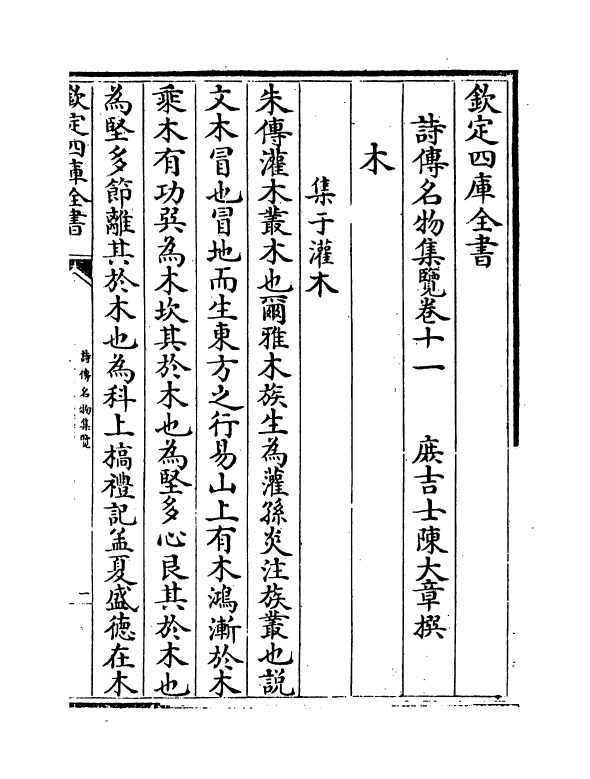 欽定四庫全書
詩傳名物集覽卷十一　　庶吉士陳大章撰
木
集于灌木
朱傳灌木叢木也爾雅木族生為灌孫炎注族叢也說
文木冒也冒地而生東方之行易山上有木鴻漸於木
乘木有功巽為木坎其於木也為堅多心艮其於木也
為堅多節離其於木也為科上槁禮記孟夏盛德在木
欽定四庫全書
詩傳名物集覽
一